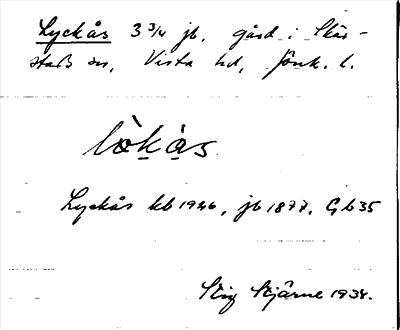 Lyckås 3 3/4 jb. gård i Skär-
stad sn, Vista hd, Jönk. l.
lo̱kås
Lyckås kb 1946, jb 1877. Gb 35
Stig Stjärne 1938.